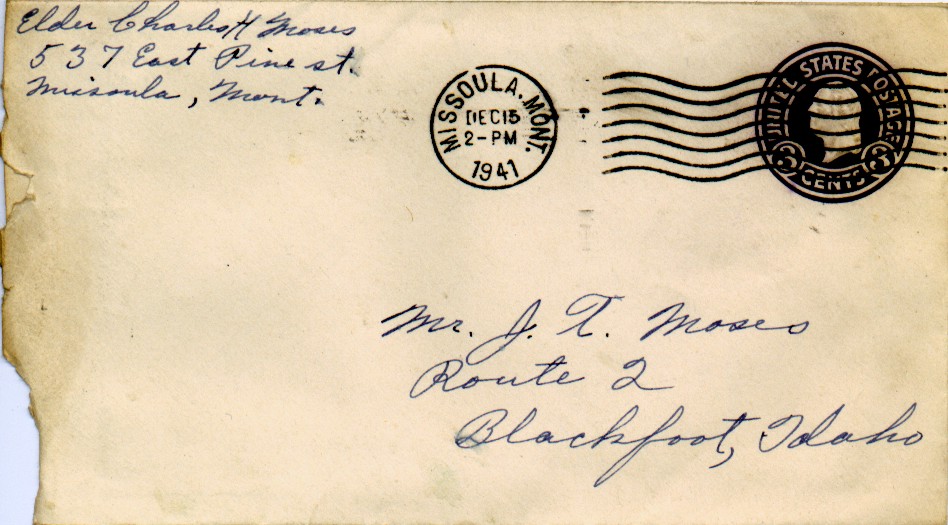 Elder Charles H Moses
537 East Pine st.
Missoula, Mont.
MISSOULA. MONT.
DEC 15
2-PM
1941
UNITED STATES POSTAGE
3 CENTS 3
Mr. J. T. Moses
Route 2
Blackfoot, Idaho